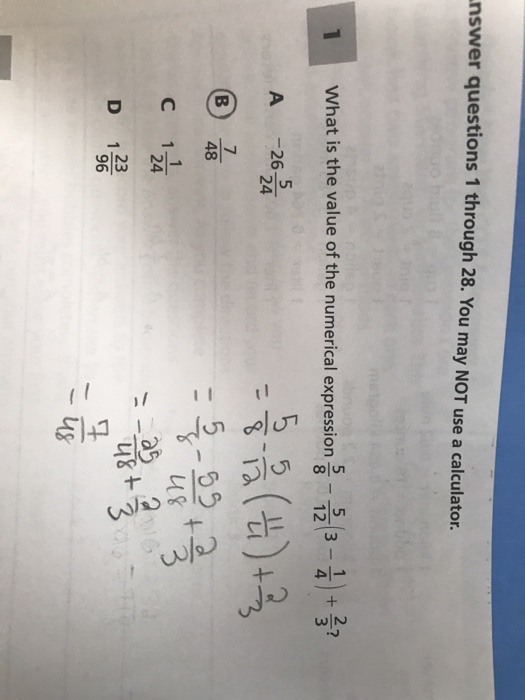 nswer questions 1 through 28. You may NOT use a calculator.
1 What is the value of the numerical expression 5/8 − 5/12(3 − 1/4) + 2/3?
A −26 5/24
B 7/48
C 1 1/24
D 1 23/96
= 5/8 - 5/12 (11/4) + 2/3
= 5/8 - 55/48 + 2/3
= - 25/48 + 2/3
= 7/48